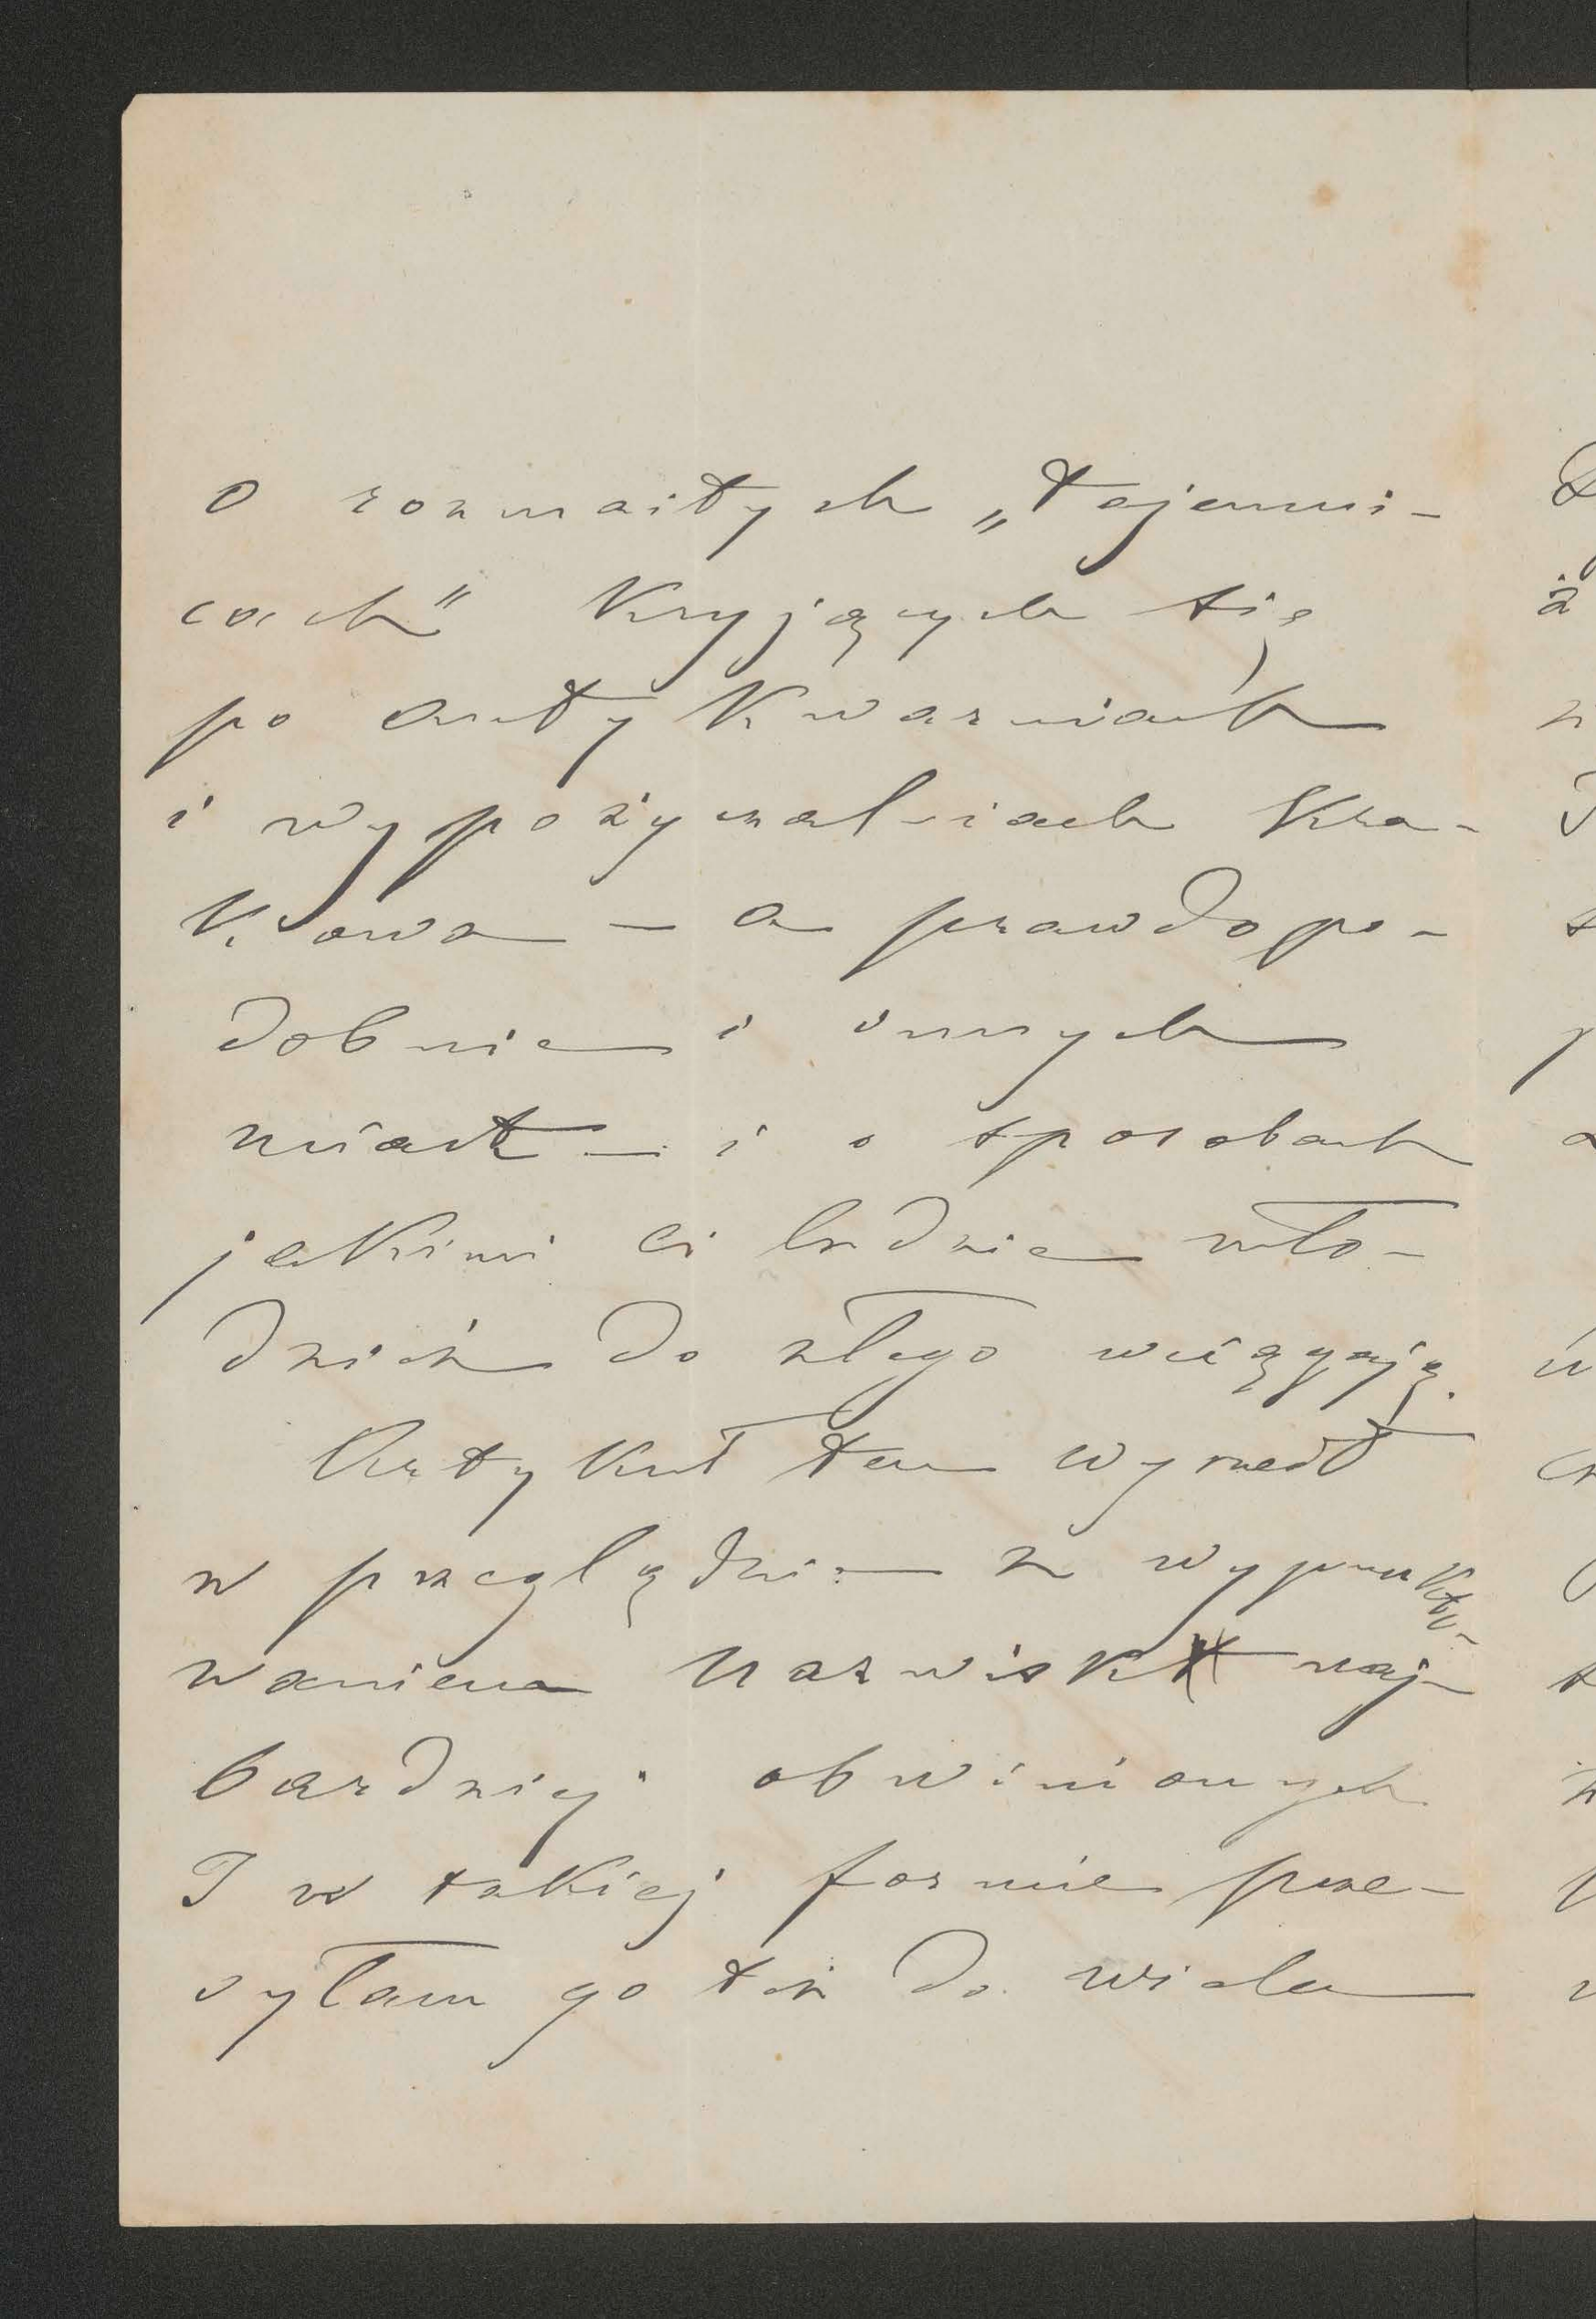 o rozmaitych „tajemni-
cach" kryjących się
po antykwarniach
i wypożyczalniach Kra-
kowa – a prawdopo-
dobnie i innych
miast – i o sposobach
jakimi ci ludzie mło-
dzież do złego wciągają.
Artykuł ten wyszedł
w przeglądzie z wypunkto-
waniem nazwisk naj-
bardziej obwinionych
I w takiej formie prze-
syłam go też do wielu